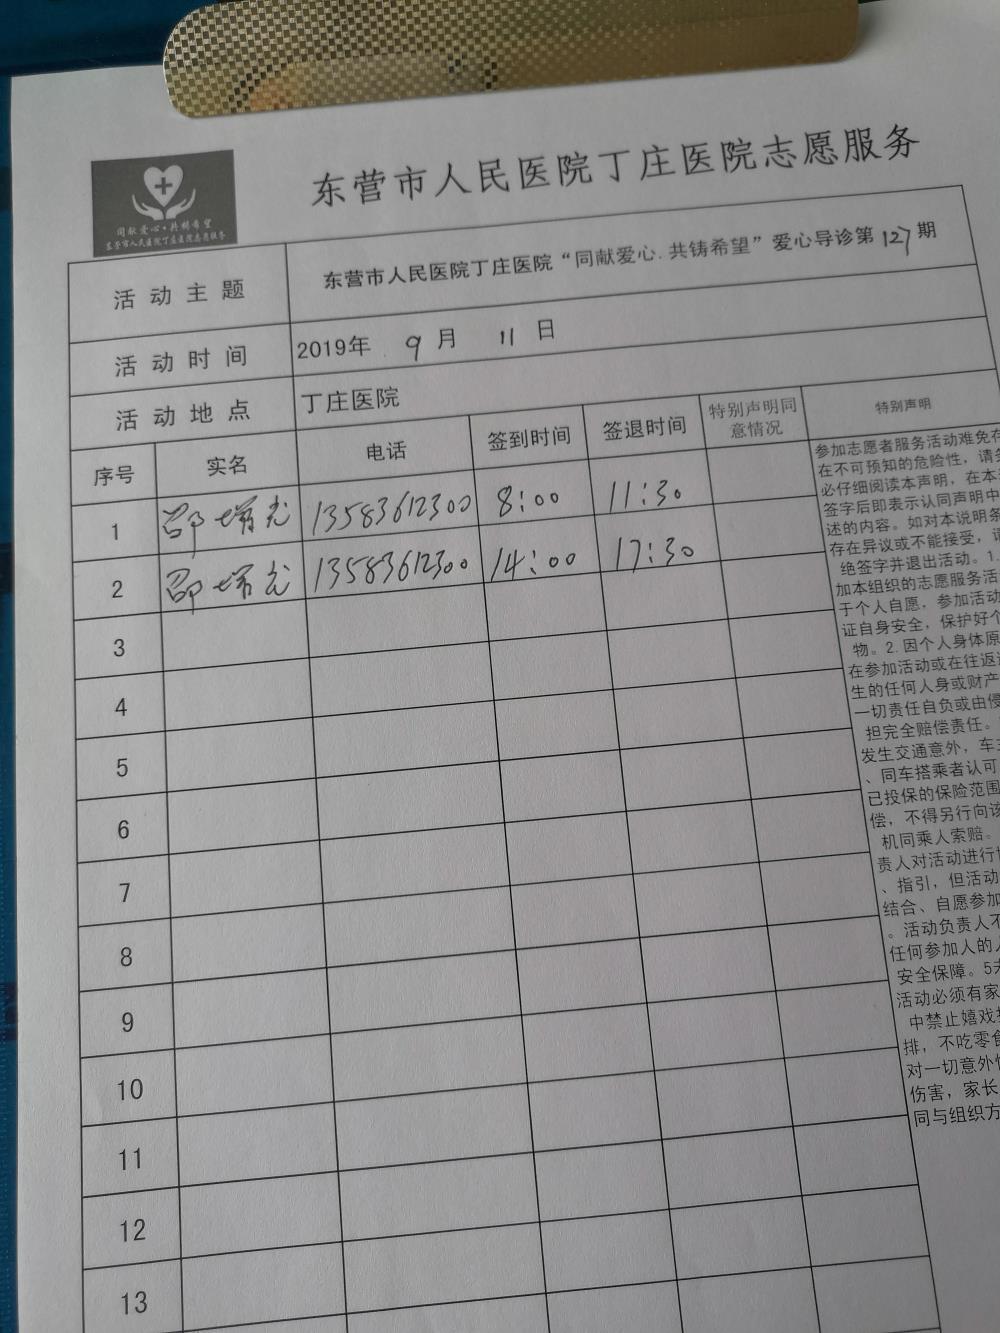 同献爱心·共铸希望
东营市人民医院丁庄医院志愿服务
东营市人民医院丁庄医院志愿服务
活动主题
东营市人民医院丁庄医院“同献爱心.共铸希望”爱心导诊第127期
活动时间
2019年 9月 11日
活动地点
丁庄医院
序号 实名 电话 签到时间 签退时间 特别声明同意情况 特别声明
1 邵增光 13583612300 8:00 11:30
2 邵增光 13583612300 14:00 17:30
3
4
5
6
7
8
9
10
11
12
13
参加志愿者服务活动难免存
在不可预知的危险性，请务
必仔细阅读本声明，在本
签字后即表示认同声明中
述的内容。如对本说明条
存在异议或不能接受，请
绝签字并退出活动。1.
加本组织的志愿服务活
于个人自愿，参加活动
证自身安全，保护好个
物。2.因个人身体原
在参加活动或在往返
生的任何人身或财产
一切责任自负或由侵
担完全赔偿责任。
发生交通意外，车主
、同车搭乘者认可
已投保的保险范围
偿，不得另行向该
机同乘人索赔。
责人对活动进行
、指引，但活动
结合、自愿参加
。活动负责人不
任何参加人的人
安全保障。5未
活动必须有家
中禁止嬉戏
排，不吃零食
对一切意外
伤害，家长
同与组织方